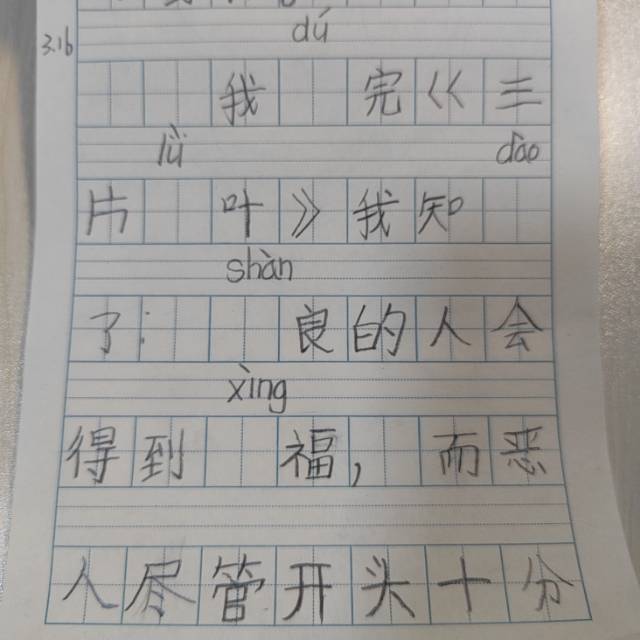 3.16
dú
我 完《三
lǜ dào
片 叶》我知
shàn
了: 良的人会
xìng
得到 福，而恶
人尽管开头十分